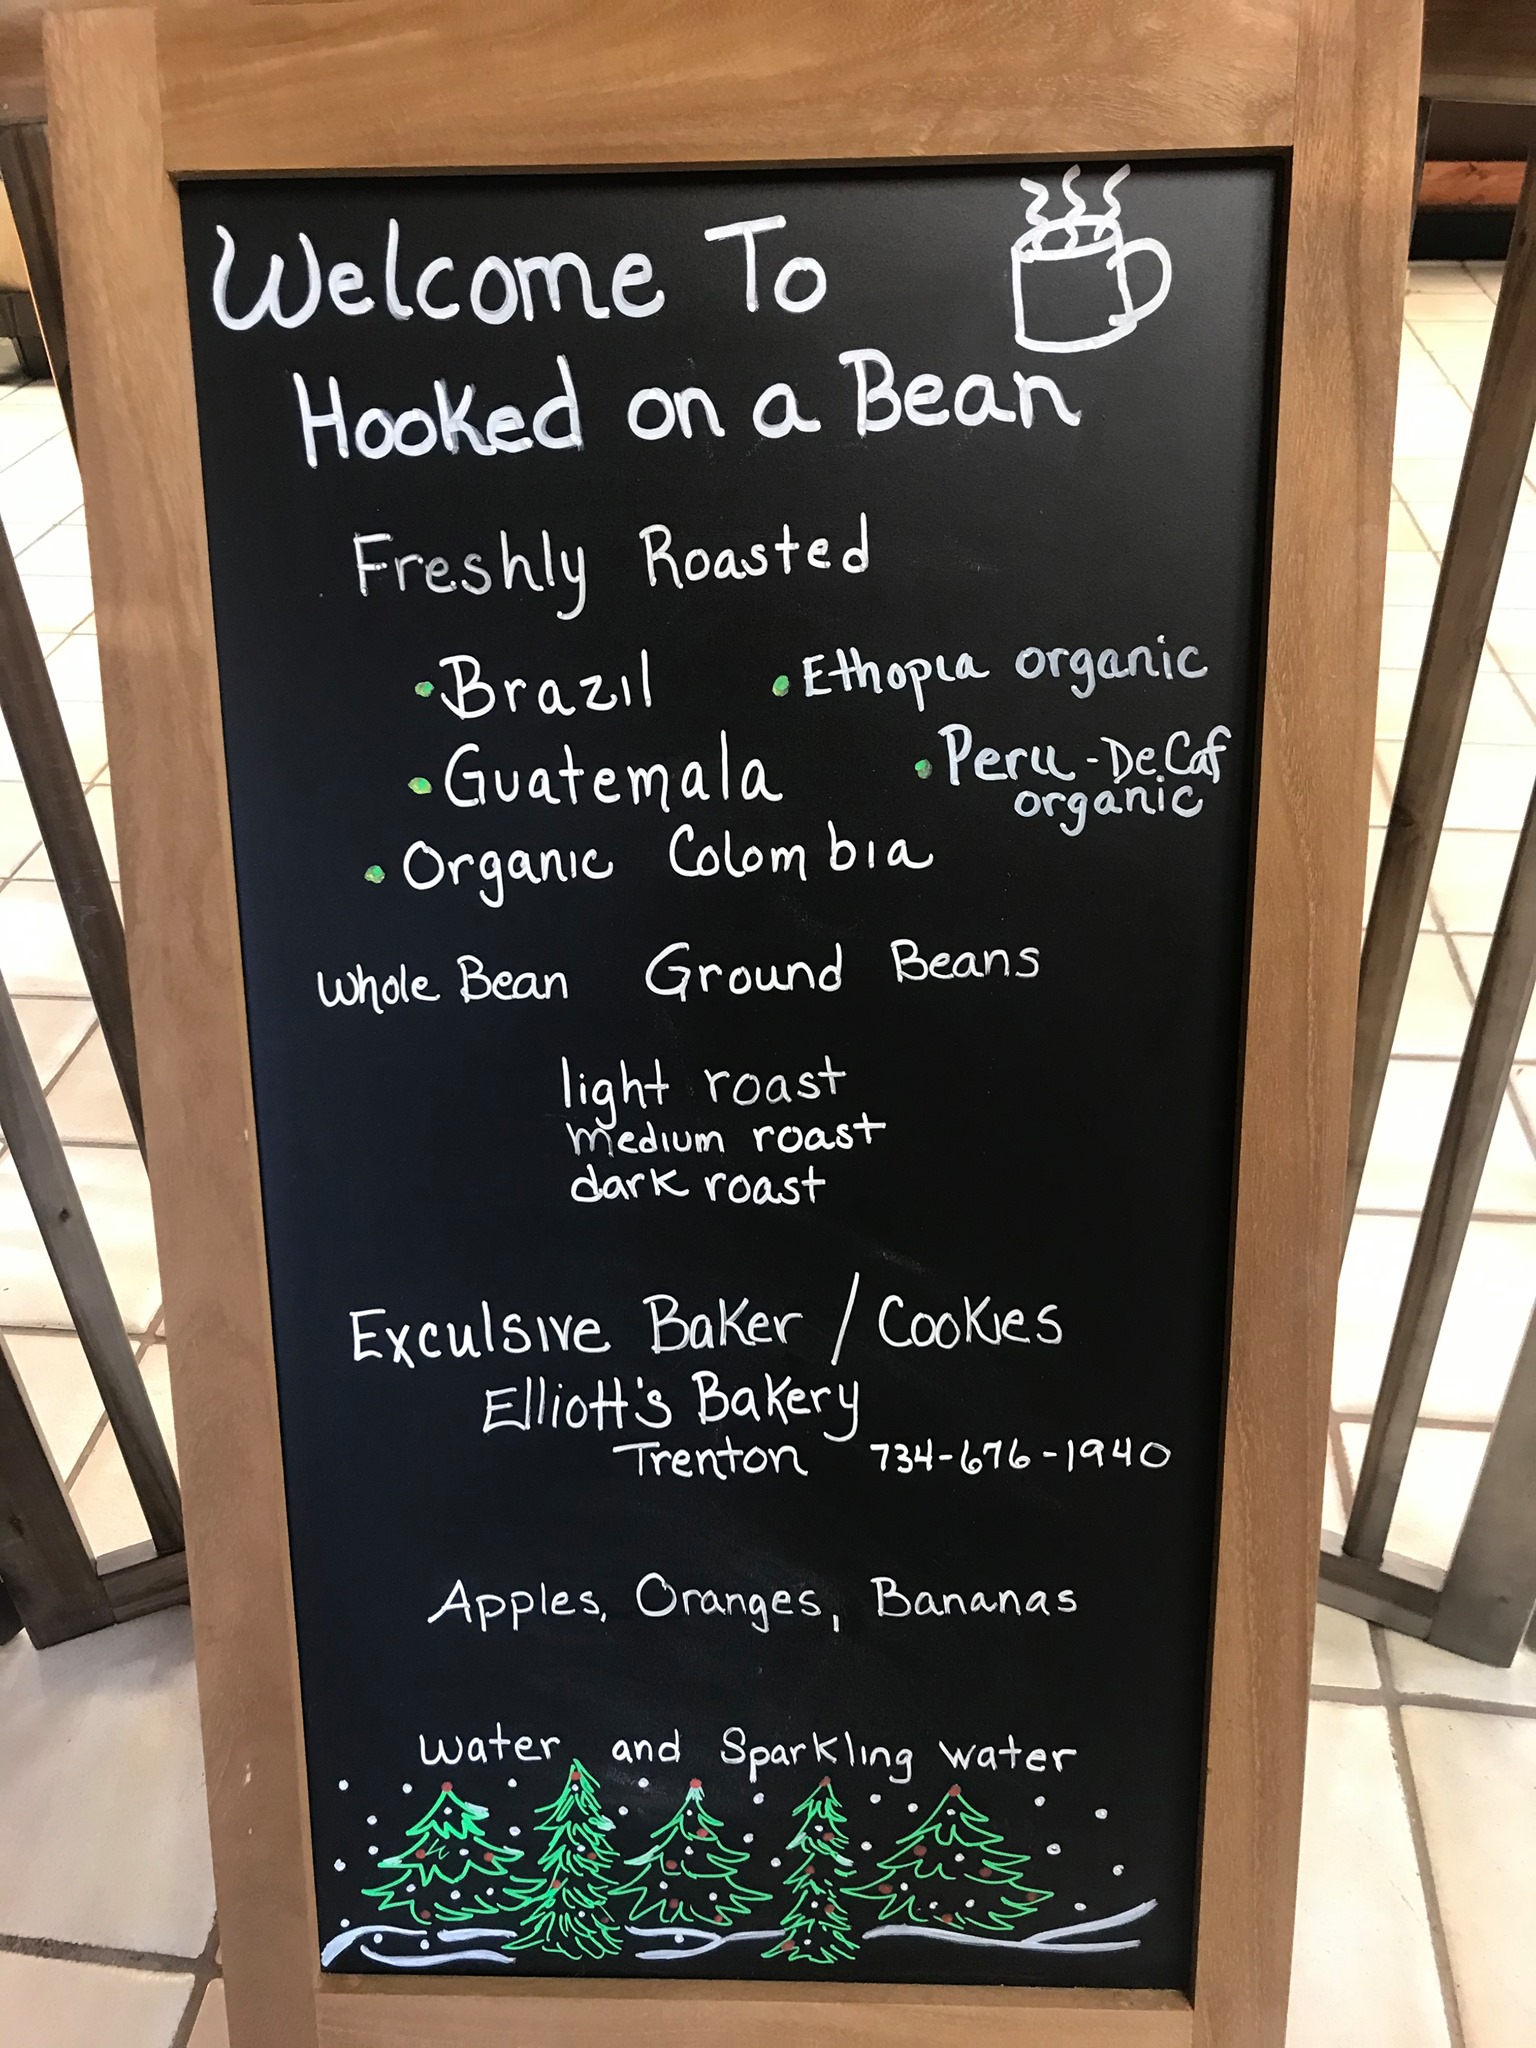 Welcome To
Hooked on a Bean
Freshly Roasted
• Brazil
• Ethopia organic
• Guatemala
• Peru - DeCaf
organic
• Organic Colombia
Whole Bean Ground Beans
light roast
medium roast
dark roast
Exculsive Baker / Cookies
Elliott's Bakery
Trenton 734-676-1940
Apples, Oranges, Bananas
Water and Sparkling water